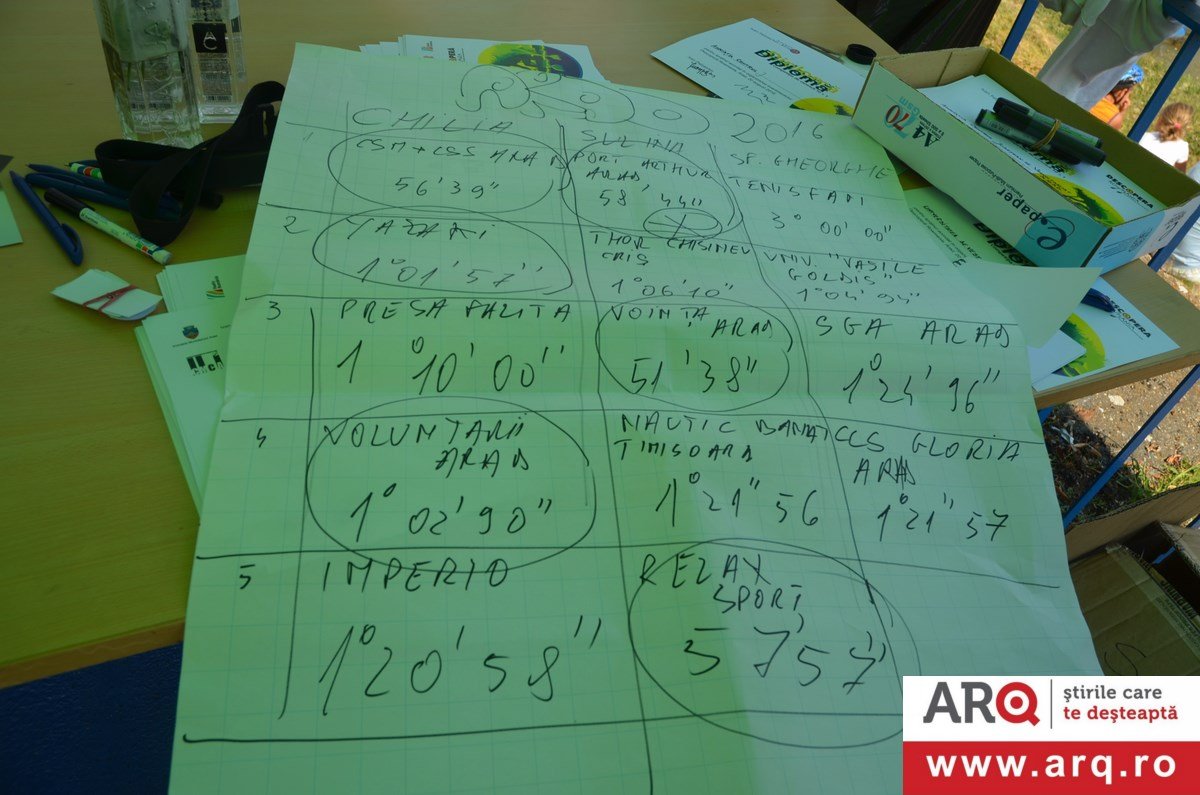 AC
Diploma
2016
CHILIA
SULINA
SF. GHEORGHE
1
CSM + CSS ARAD
56'39"
PORT ARTHUR
ARAD
58'44"
TENIS FANI
3° 00'00"
2
1°01'57"
THOR CHISINEU
CRIS
1°06'10"
UNIV. "VASILE
GOLDIS"
1°04'94"
3
PRESA
1°10'00"
VOINȚA
ARAD
51'38"
SGA ARAD
1°24'96"
4
VOLUNTARII
ARAD
1°02'90"
NAUTIC BANAT
TIMISOARA
1°21"56
CCS GLORIA
ARAD
1°21"57
5
IMPERIO
1°20'58"
RELAX
SPORT
57'57"
A4
70
GSM
e.paper
e.
ARQ
știrile care
te deșteaptă
www.arq.ro